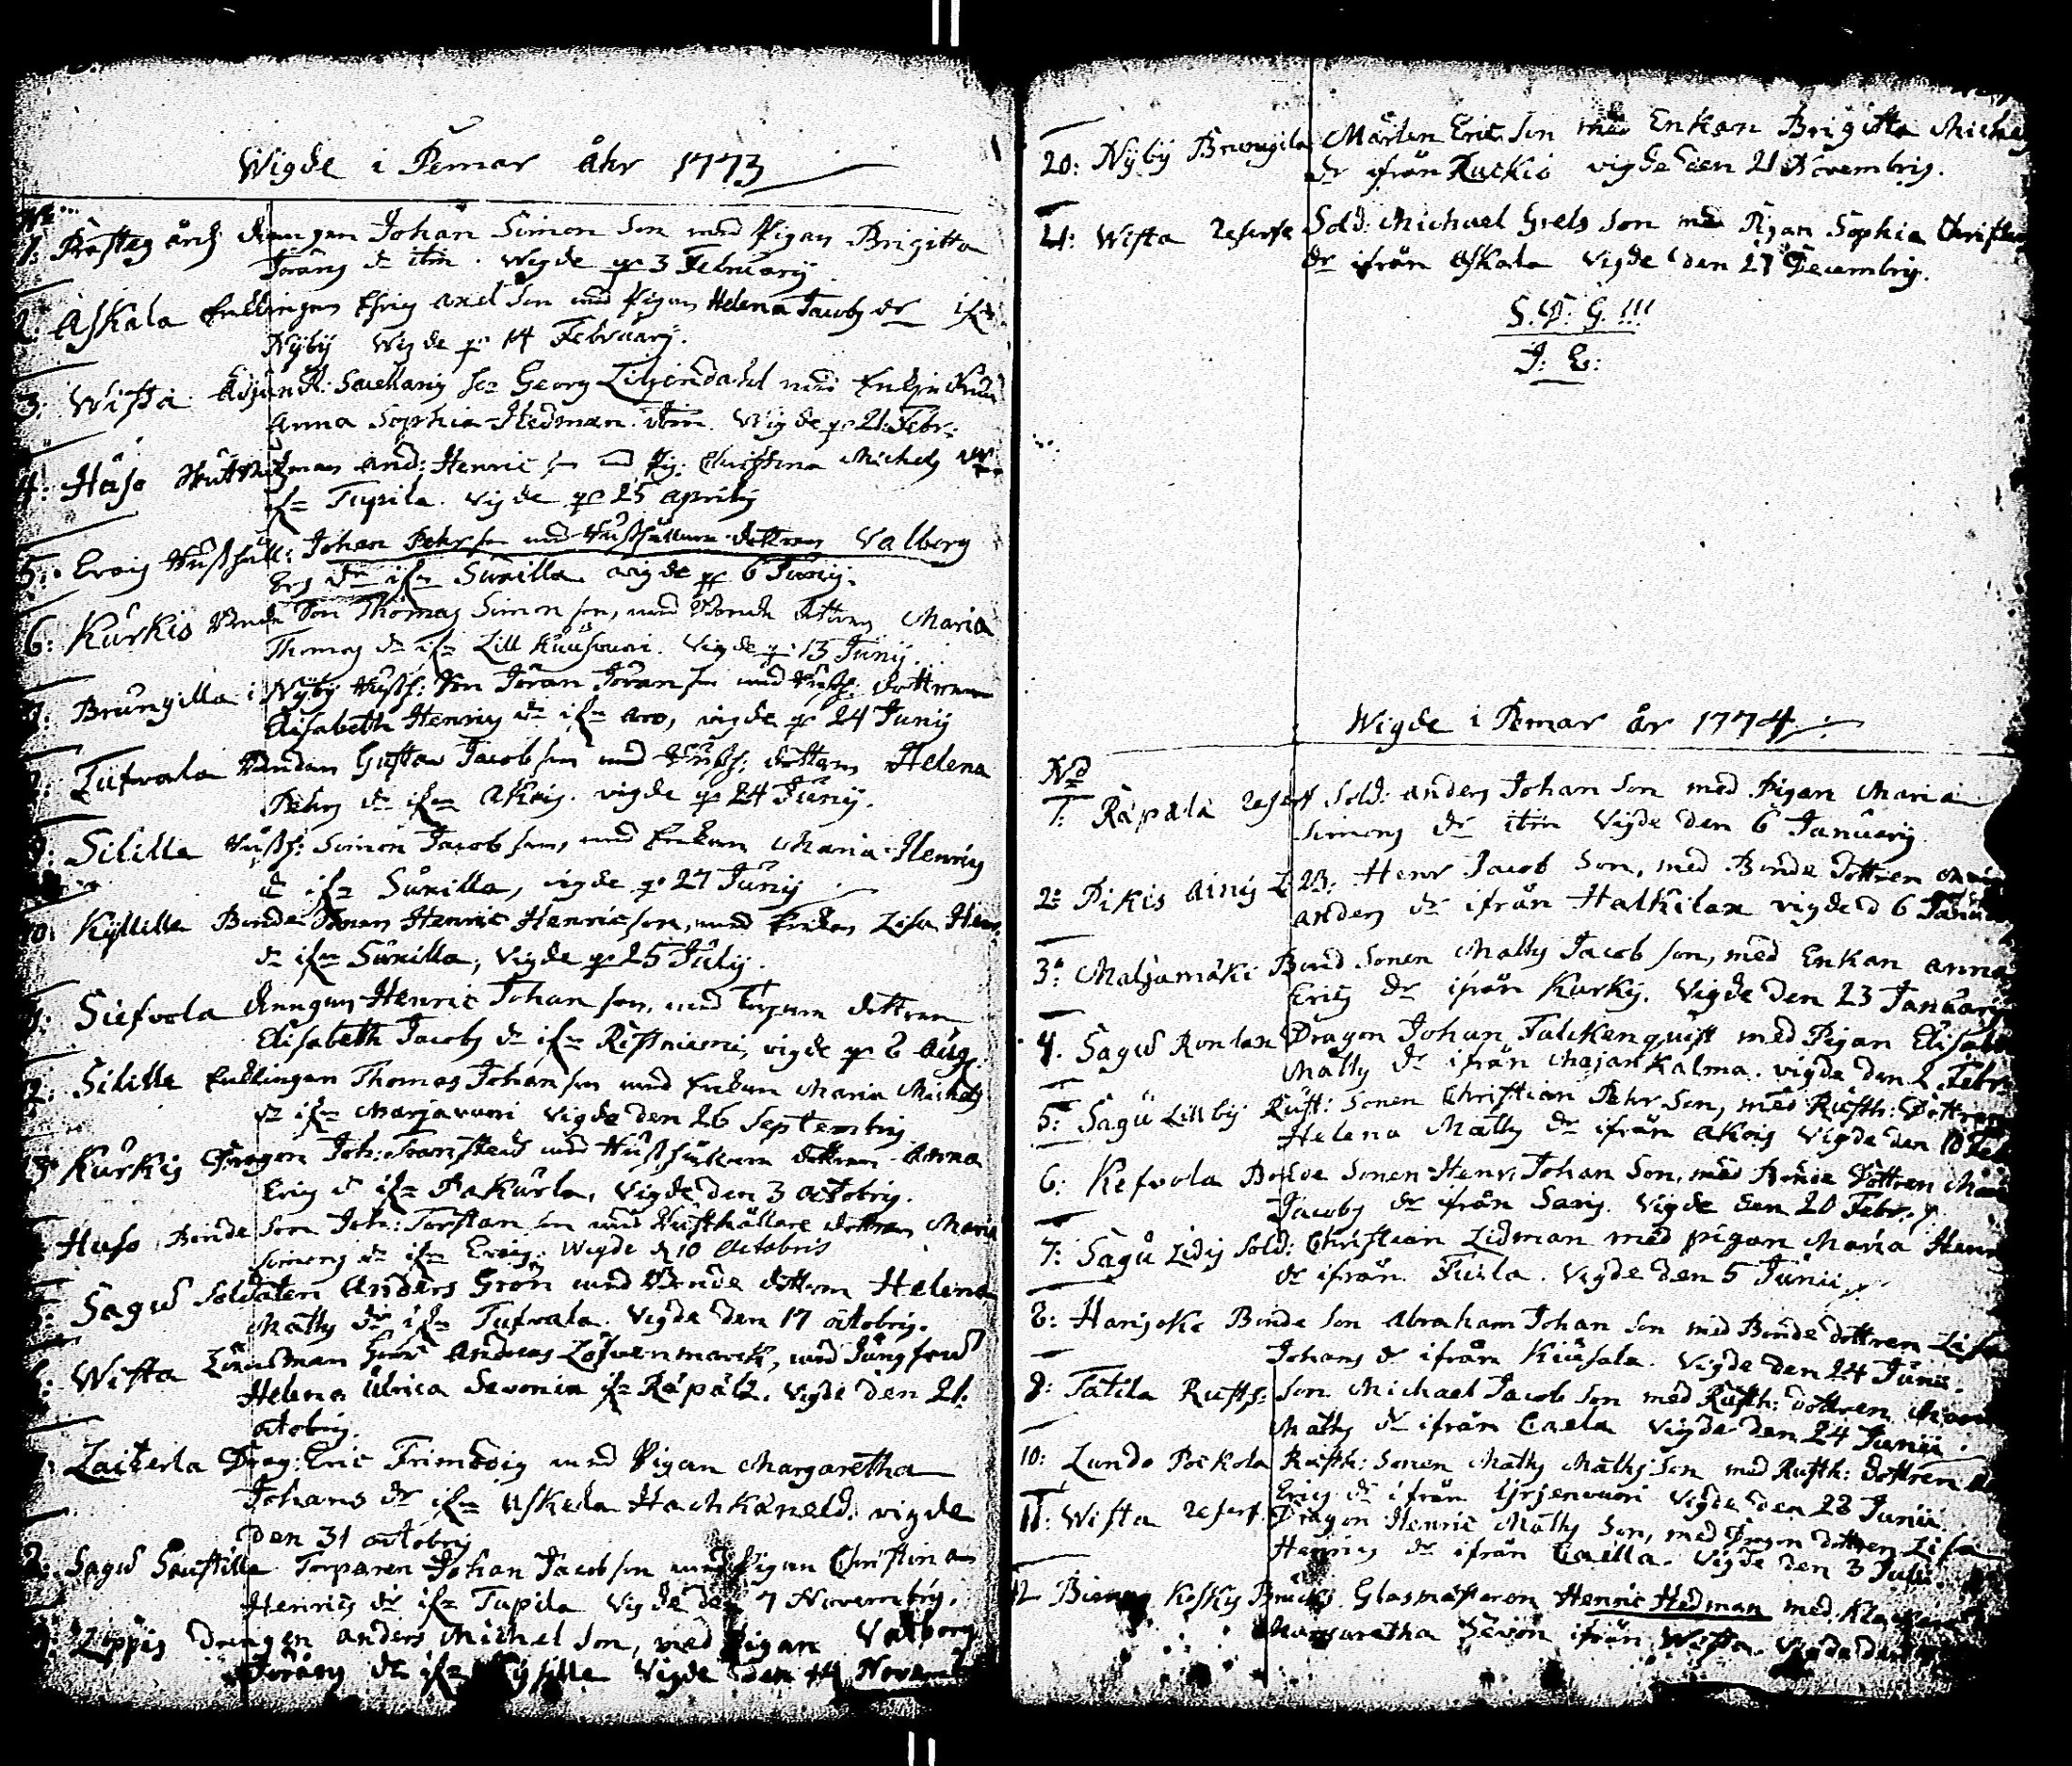 Wigde i Pemar åhr 1773
No
1: Drengen Johan Simon Son med Pigan Brigitta
Jörans dr itm. Wigde pr 3 February
2: Askala Enklingen Axel Son med Pigan Helena Jacobs dr
Nyby Wigde pr 14 February.
3: Wista Georg Liljendahl med
Anna Sophia Hedman itm. Wigde pr 21: Febr:
4: Huso And: Henric son med Pig: Christina Michels dr
ifn Tupila. Vigde pr 25 aprilis
5: Evois Hushåll: Johan Pehr son med Hushållare dottren Valborg
Ers dr ifn Sunilla. vigde pr 6 Junij.
6: Kurkis Bonde Son Thomas Simon son, med Bonde dottren Maria
Thomas dr ifn Lill Vigde pr 13 Junij.
7: Brungilla i Nyby Hush: Son Jöran Jöran son med Hush: dottren
Elisabeth Henrics dr ifn Aro, vigde pr 24 Junij
8: Tufvala Bonden Gustav Jacob son med Hush: dottren Helena
Pehrs dr ifn Akois. vigde pr 24 Junij.
9: Sililla Hush: Simon Jacob son, med Enkan Maria Henrics
dr ifn Sunilla, vigde pr 27 Junij
10: Kyllilla Bonde Sonen Henric Henric son, med Enkan Lisa Henr.
dr ifn Sunilla, Vigde pr 25 Julij.
Siefvola Drengen Henric Johan son, med Torpare dottren
Elisabeth Jacobs dr ifn Ristniemi, vigde pr 8 Aug.
12: Silille Enklingen Thomas Johan son med Enkan Maria Michels
dr ifn Marjavuori Vigde den 26 Septembris
Kurkis Dragon Joh: med Hushållare dottren Anna
Erics dr ifn Pakurla, Vigde den 3 octobris.
Huso Bonde Son Joh: Torstan son med Husthållare dottren Maria
Simons dr ifn Evois. Wigde d 10 Octobris
Sagu Soldaten Anders Grön med Bonde dottren Helena
Matts dr ifn Tufvala. Vigde den 17 octobris.
Wista Länsman Andreas Löfvenmarck, med Jungfru
Helena Ulrica Sevonia ifn Räpälä. Vigde den 21.
octobris.
Laikerla Drag: Eric med Pigan Margaretha
Johans dr ifn Askala vigde
den 31 octobris
Sagu Torparen Johan Jacob son med Pigan Christina
Henrics dr ifn Tupila Vigde den 7 Novembris.
Lippis Drengen Anders Michel Son, med Pigan Valborg
Jörans dr ifn Vigde den 14 Novemb
20: Nyby Brungila Mårten Eric Son med Enkan Brigitta Michels
dr ifrån Kurkis vigde den 21 Novembris.
21: Wista Reserfe Sold: Michael Grels Son med Pigan Sophia Christ
dr ifrån Askala Vigde den 27 Decembris.
S. D. G. !!!
J: E:
Wigde i Pemar år 1774
No
1: Räpälä Reserf Sold: Anders Johan Son med Pigan Maria
Simons dr itm Vigde den 6 January
2: Pikis Henr Jacob Son, med Bonde Dottren
Anders dr ifrån Halkilax vigde d 6 Janu
3: Maljamäki Bond Sonen Matts Jacob son, med Enkan Anna
Erics dr ifrån Kurkis. Vigde den 23 January
4. Sagu Ronlax Dragon Johan Falckenquist med Pigan Elisab
Matts dr ifrån Majankalma. vigde den 2 Febr.
5: Sagu Lillby Rust: Sonen Christian Pehr Son, med Rusth: Dottren
Helena Matts dr ifrån Akois Vigde den 10 Feb
6: Kefvola Bonde Sonen Henr. Johan Son, med Bonde Dottren Mar
Jacobs dr ifrån Saris. Vigde den 20 Febr.
7: Sagu Sold: Christian Lidman med pigan Maria Henr
dr ifrån Vigde den 5 Junii
8: Hanjoki Bonde Son Abraham Johan Son med Bonde dottren Lisa
Johans dr ifrån Vigde den 24 Junii.
9: Tätilä Rusth: Son Michael Jacob Son med Rusth: dottren
Matts dr ifrån Caela Vigde den 24 Junii.
10: Lundo Rusth: Sonen Matts Matts Son med Rusth: dottren
Erics dr ifrån Vigde den 28 Junii.
11: Wista Reserf. Dragon Henric Matts Son, med Dragon dottren Lisa
Henrics dr ifrån Vigde den 3 Julii.
12 Koskis Bruck, Glasmästaren Henric Hedman med
Margaretha Sevon ifrån Wista. Vigde den